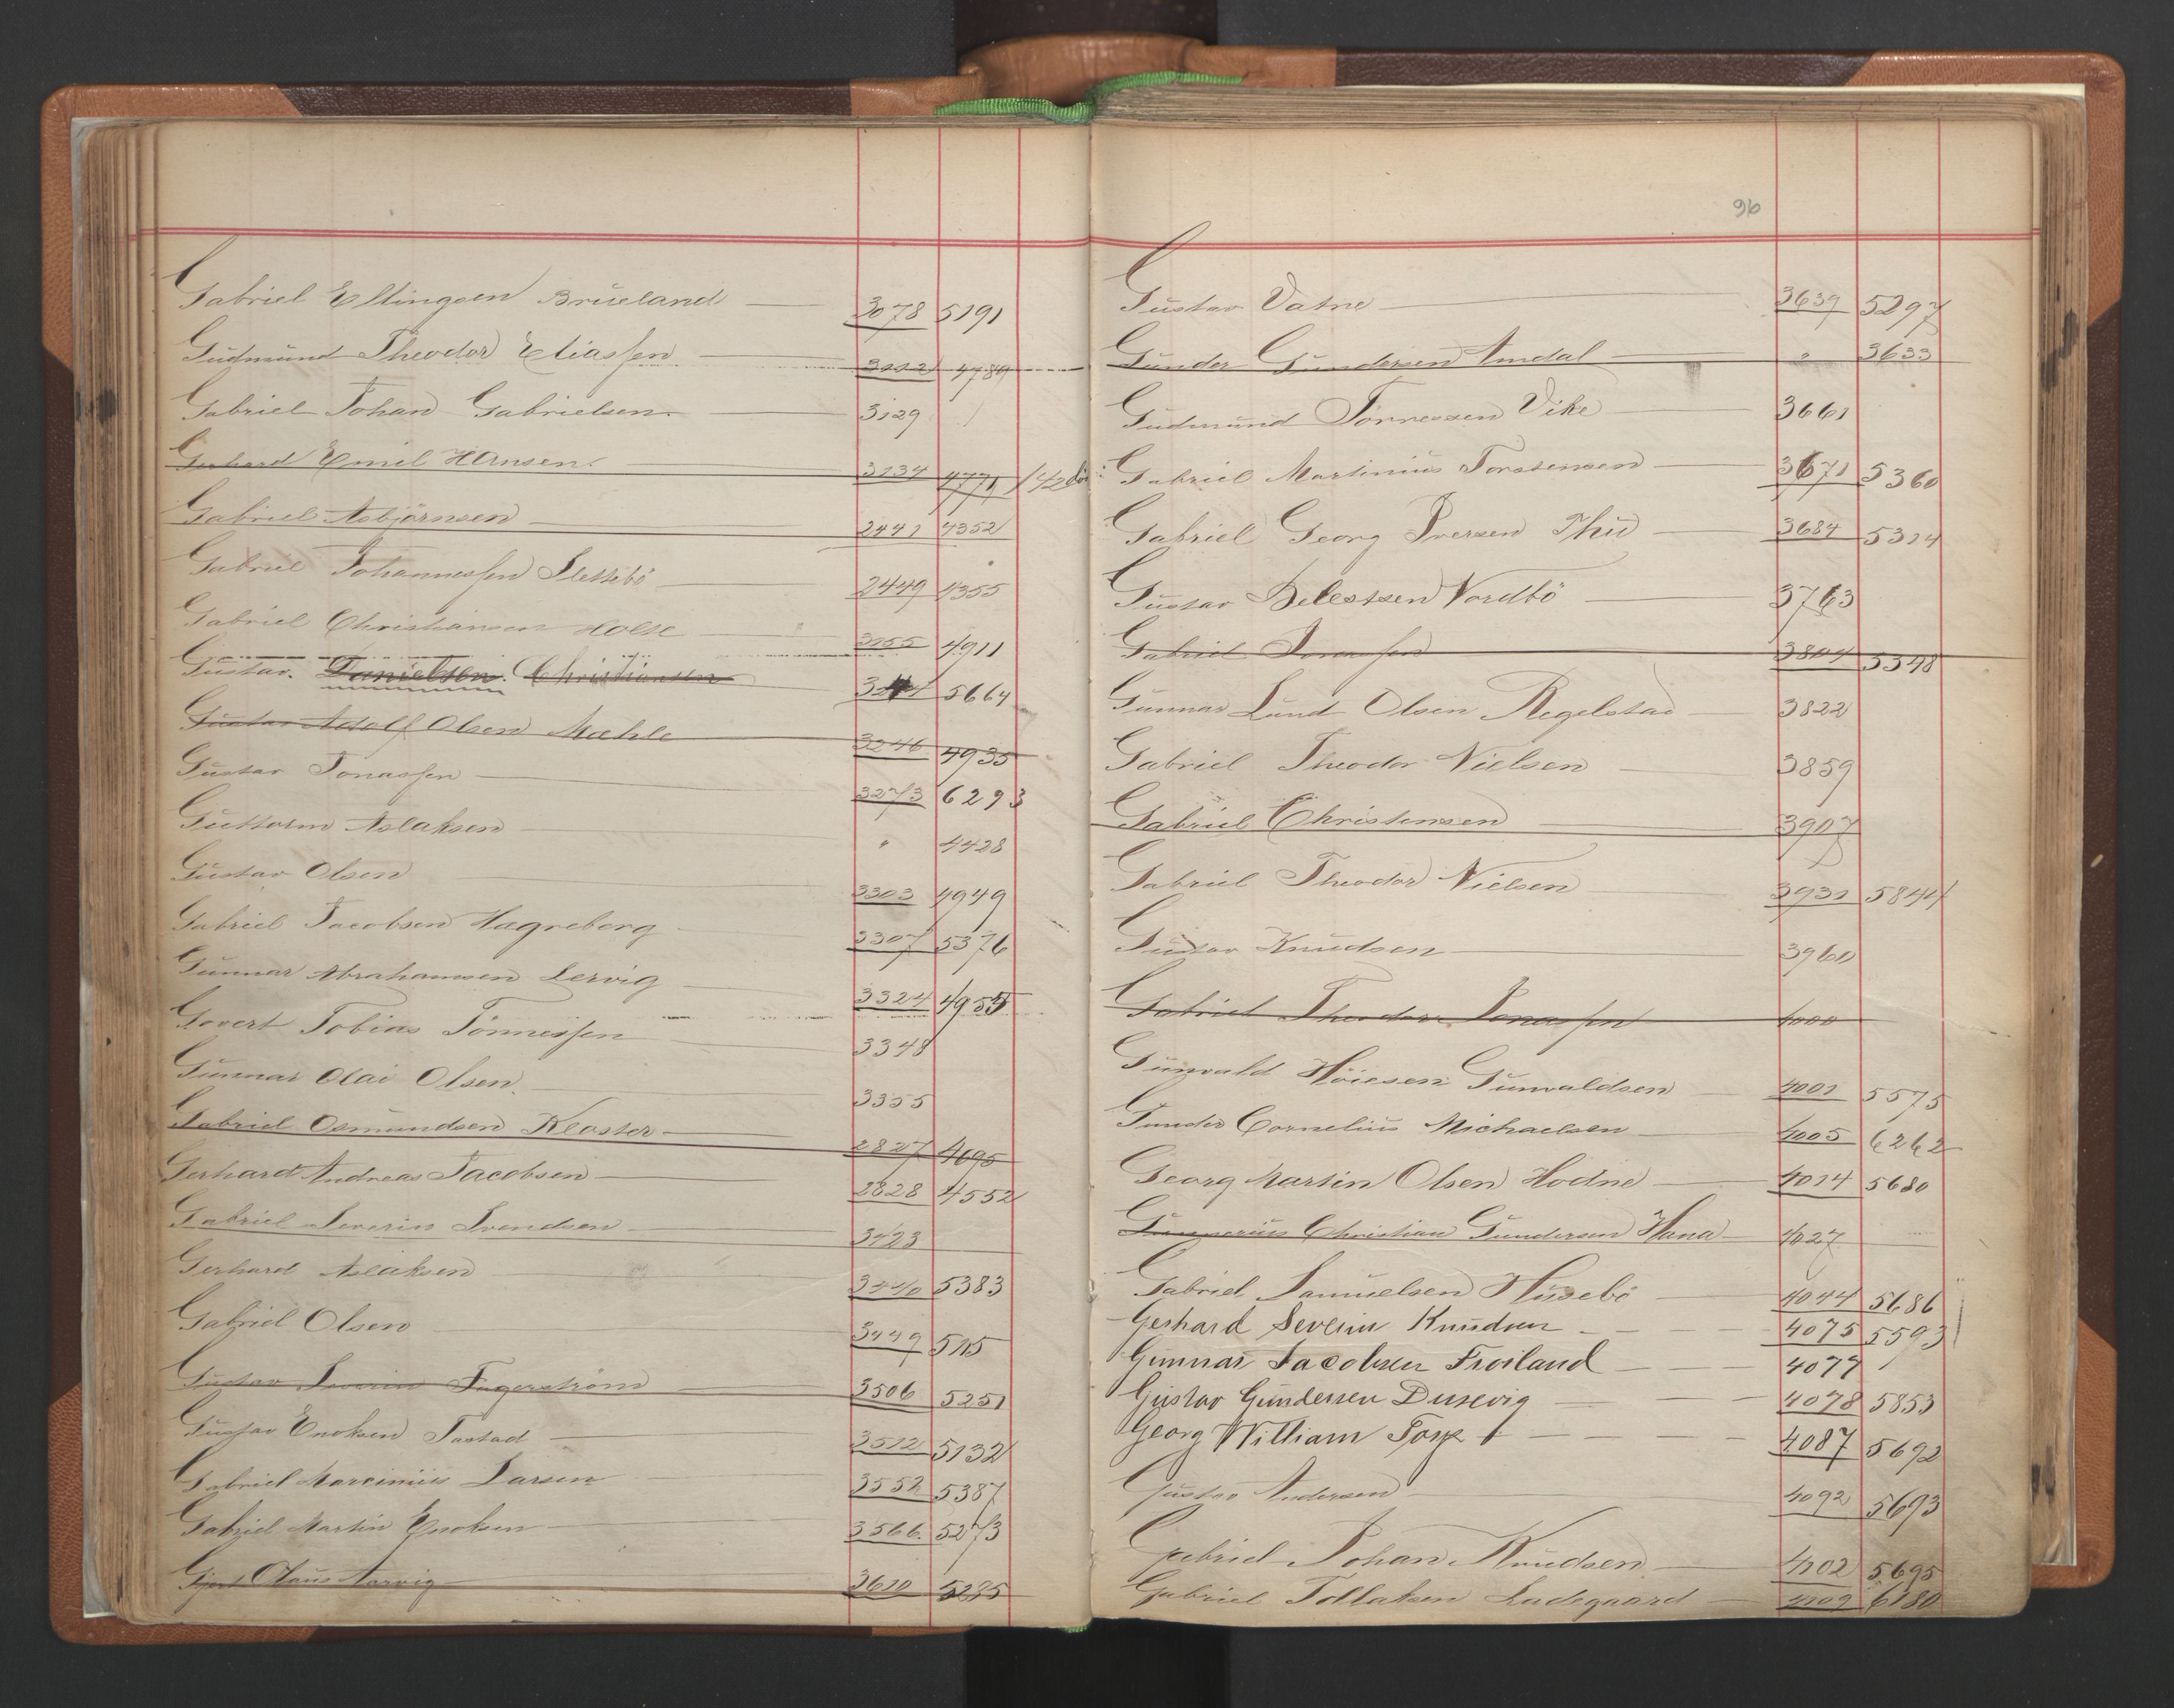 Gabriel Ellingsen Brueland 3078 5191
Gudmund Theodor Eliassen 3112 4789
Gabriel Johan Gabrielsen 3129
Gerhard Emil Hansen 3134 4771
Gabriel Asbjörnsen 2441 4352
Gabriel Johannessen Slettebö 2449 4355
Gabriel Christiansen Holse 3155 4911
Gustav Danielsen Christiansen 5664
Gustav Adolf Olsen Mæhle 3246 4935
Gustav Jonassen 3273 6293
Guttorm Aslaksen " 4428
Gustav Olsen 3303 4949
Gabriel Jacobsen Hagreberg 3307 5376
Gunnar Abrahamsen Lervig 3324 4955
Govert Tobias Tönnessen 3348
Gunnar Olai Olsen 3355
Gabriel Osmundsen Kloster 2827 4695
Gerhard Andreas Jacobsen 2828 4552
Gabriel Severin Svendsen 3423
Gerhard Aslaksen 3440 5383
Gabriel Olsen 3449 5115
Gustav Severin Fagerström 3506 5251
Gustav Enoksen Tastad 3512 5132
Gabriel Marcinius Larsen 3552 5387
Gabriel Martin Enoksen 3566 5273
Gjert Olaus Aarvig 3610 5235
96
Gustav Vatne 3639 5297
Gunder Gundersen Amdal " 3633
Gudmund Tönnessen Vike 3661
Gabriel Martinius Torstensen 3671 5360
Gabriel Georg Iversen Thu 3684 5314
Gustav Selestsen Nordbö 3763
Gabriel Jonassen 3804 5348
Gunnar Lund Olsen Regelstad 3822
Gabriel Theodor Nielsen 3859
Gabriel Christensen 3907
Gabriel Theodor Nielsen 3931 5844
Gustav Knudsen 3960
Gabriel Theodor Jonassen 4000
Gunvald Höiesen Gunvaldsen 4001 5575
Gunder Cornelius Michaelsen 4005 6262
Georg Martin Olsen Hodne 4014 5680
Gunnerius Christian Gundersen Hana 4027
Gabriel Samuelsen Husebö 4044 5686
Gerhard Severin Knudsen 4075 5593
Gunnar Jacobsen Froiland 4077
Gustav Gundersen Dusevig 4078 5853
Georg William 4087 5692
Gustav Andersen 4092 5693
Gabriel Johan Knudsen 4102 5695
Gabriel Tollaksen Ladegaard 4109 6180